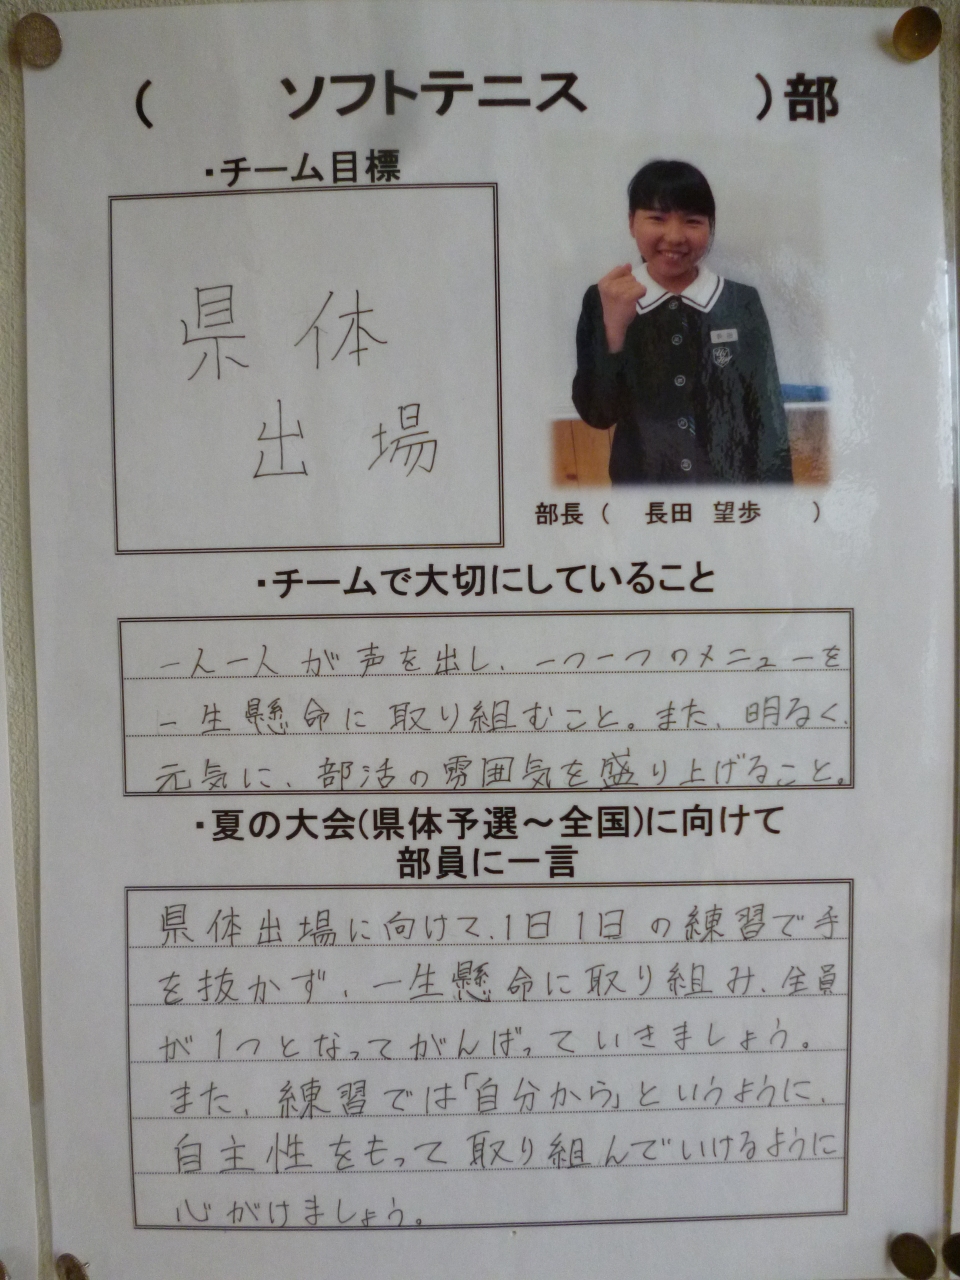 （ ソフトテニス ）部
・チーム目標
県体
出場
部長（ 長田 望歩 ）
・チームで大切にしていること
一人一人が声を出し、一つ一つのメニューを
一生懸命に取り組むこと。また、明るく、
元気に、部活の雰囲気を盛り上げること。
・夏の大会(県体予選～全国)に向けて
部員に一言
県体出場に向けて、1日1日の練習で手
を抜かず、一生懸命に取り組み、全員
が1つとなってがんばっていきましょう。
また、練習では「自分から」というように、
自主性をもって取り組んでいけるように
心がけましょう。